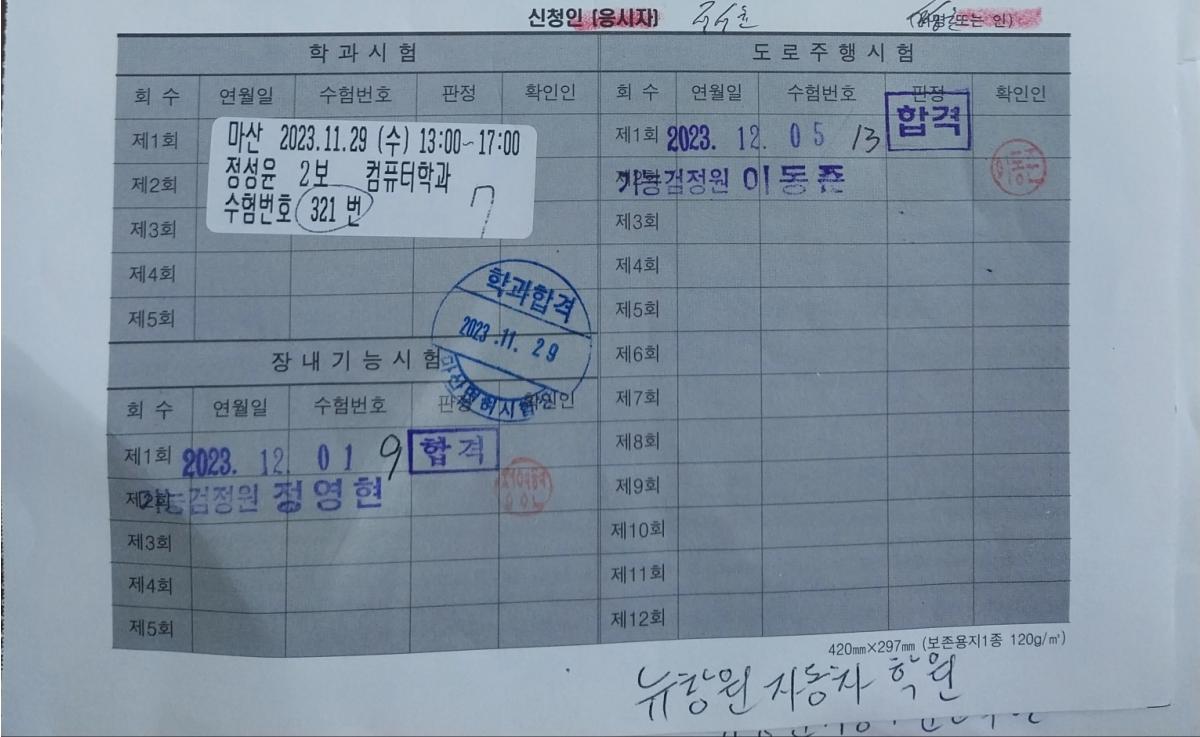 신청인 (응시자) (서명 또는 인)
학 과 시 험
회 수 연월일 수험번호 판정 확인인
제1회
마산 2023.11.29 (수) 13:00~17:00
제2회
정성윤 2보 컴퓨터학과
수험번호 321 번 7
제3회
제4회
제5회
학과합격
2023.11. 29
마산면허시험
장 내 기 능 시 험
회 수 연월일 수험번호 판정 확인인
제1회 2023. 12. 01 9 합격
제2회 기능검정원 정영현
제3회
제4회
제5회
도 로 주 행 시 험
회 수 연월일 수험번호 판정 확인인
제1회 2023. 12. 05 13 합격
기능검정원 이동준
제3회
제4회
제5회
제6회
제7회
제8회
제9회
제10회
제11회
제12회
420㎜×297㎜ (보존용지1종 120g/㎡)
뉴창원 자동차 학원